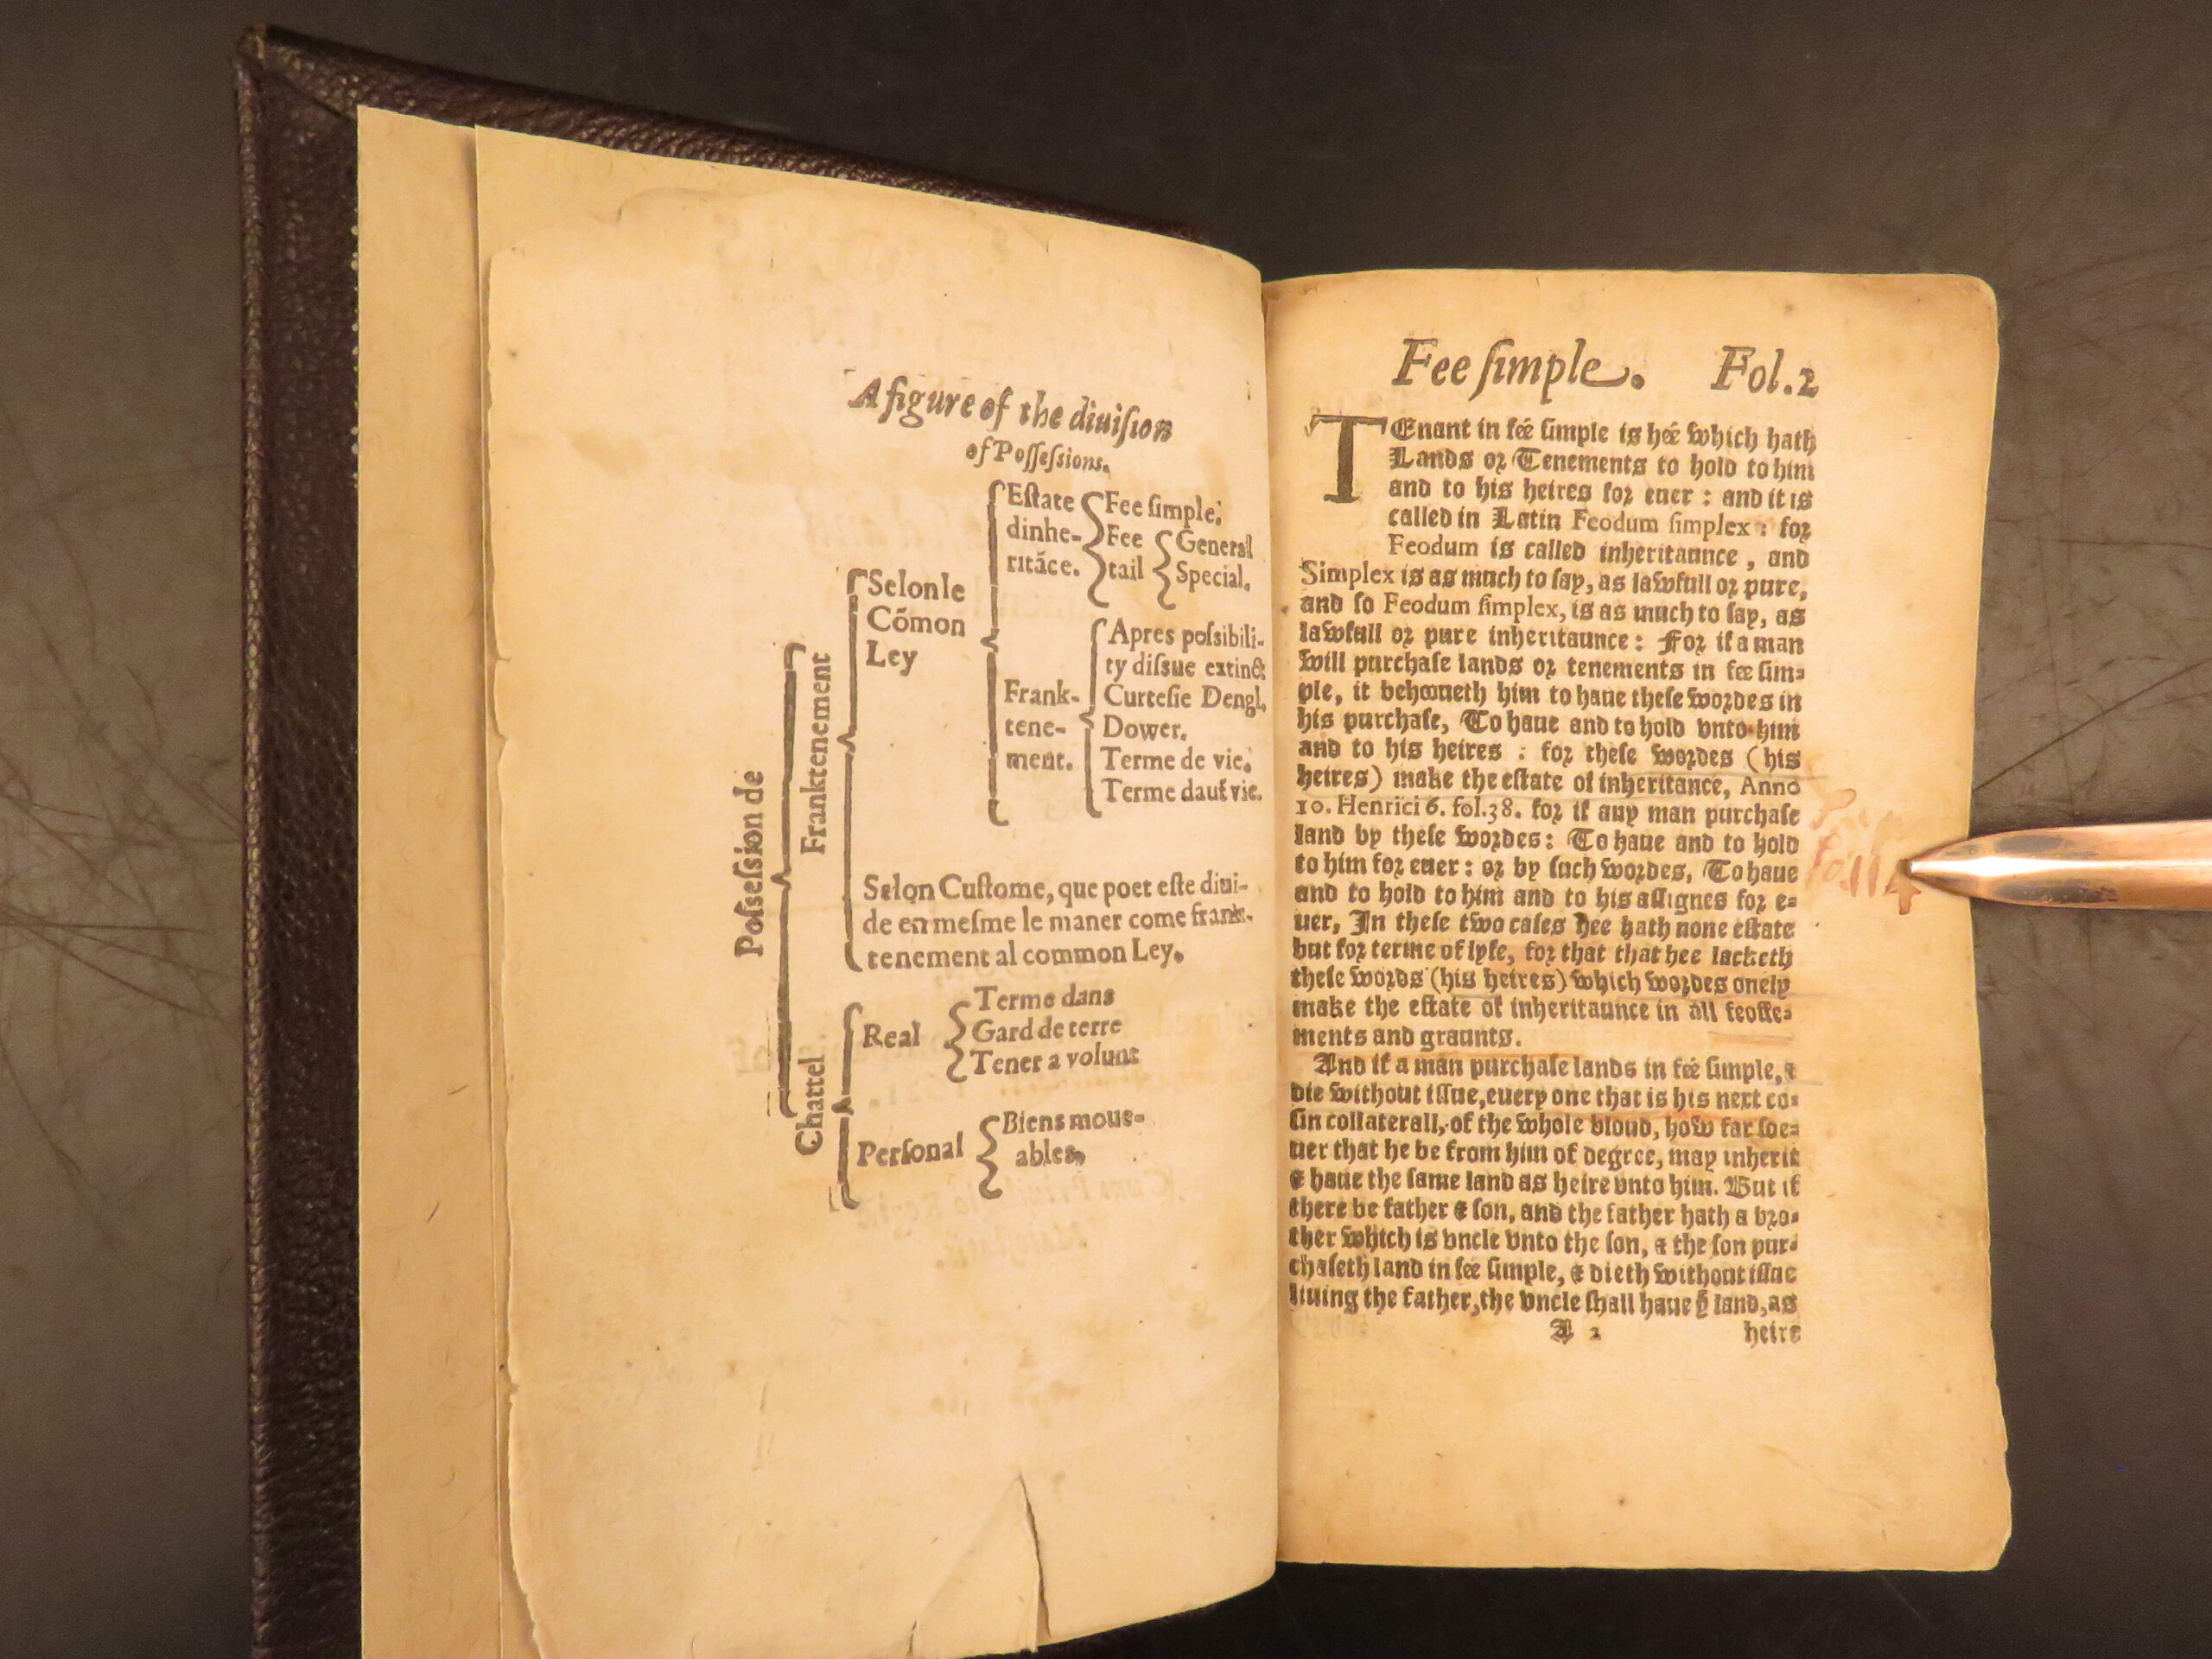 A figure of the diuiſion
of Poſſeſsions.
Poſseſsion de
Franktenement
Selon le
Cõmon
Ley
Eſtate
dinhe-
ritãce.
Fee ſimple.
Fee
tail
General
Special.
Frank-
tene-
ment.
Apres poſsibili-
ty diſsue extinct
Curteſie Dengl.
Dower.
Terme de vie.
Terme dauť vie.
Selon Cuſtome, que poet eſte diui-
de en meſme le maner come frank-
tenement al common Ley.
Chattel
Real
Terme dans
Gard de terre
Tener a volunt
Perſonal
Biens moue-
ables.
Fee ſimple. Fol.2
TEnant in feé ſimple is heé which hath
Lands or Tenements to hold to him
and to his heires for euer : and it is
called in Latin Feodum ſimplex : for
Feodum is called inheritaunce , and
Simplex is as much to ſay, as lawfull or pure,
and ſo Feodum ſimplex, is as much to ſay, as
lawfull or pure inheritaunce: For if a man
will purchaſe lands or tenements in fee ſim-
ple, it behooueth him to haue theſe wordes in
his purchaſe, To haue and to hold vnto him
and to his heires : for theſe wordes (his
heires) make the eſtate of inheritance, Anno
10. Henrici 6. fol.38. for if any man purchaſe
land by theſe wordes: To haue and to hold
to him for euer: or by ſuch wordes, To haue
and to hold to him and to his aſſignes for e-
uer, In theſe two caſes hee hath none eſtate
but for terme of lyfe, for that that hee lacketh
theſe words (his heires) which wordes onely
make the eſtate of inheritaunce in all feoffe-
ments and graunts.
And if a man purchaſe lands in feé ſimple, &
die without iſſue, euery one that is his next co-
ſin collaterall, of the whole bloud, how far ſoe-
uer that he be from him of degree, may inherit
& haue the ſame land as heire vnto him. But if
there be father & ſon, and the father hath a bro-
ther which is vncle vnto the ſon, & the ſon pur-
chaſeth land in feé ſimple, & dieth without iſſue
liuing the father, the vncle ſhall haue yͤ land, as
A 2 heire